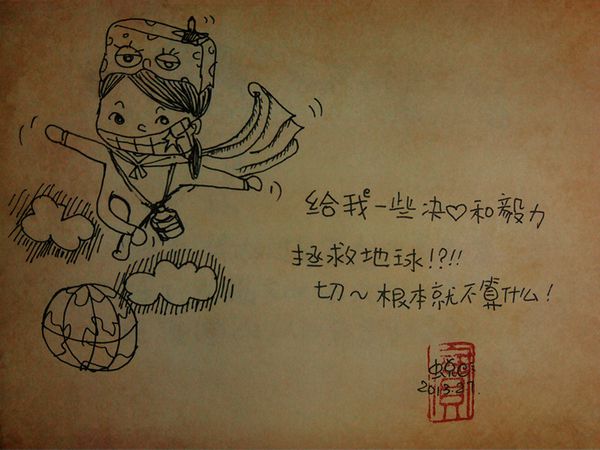 给我一些决♡和毅力
拯救地球!?!!
切~根本就不算什么!